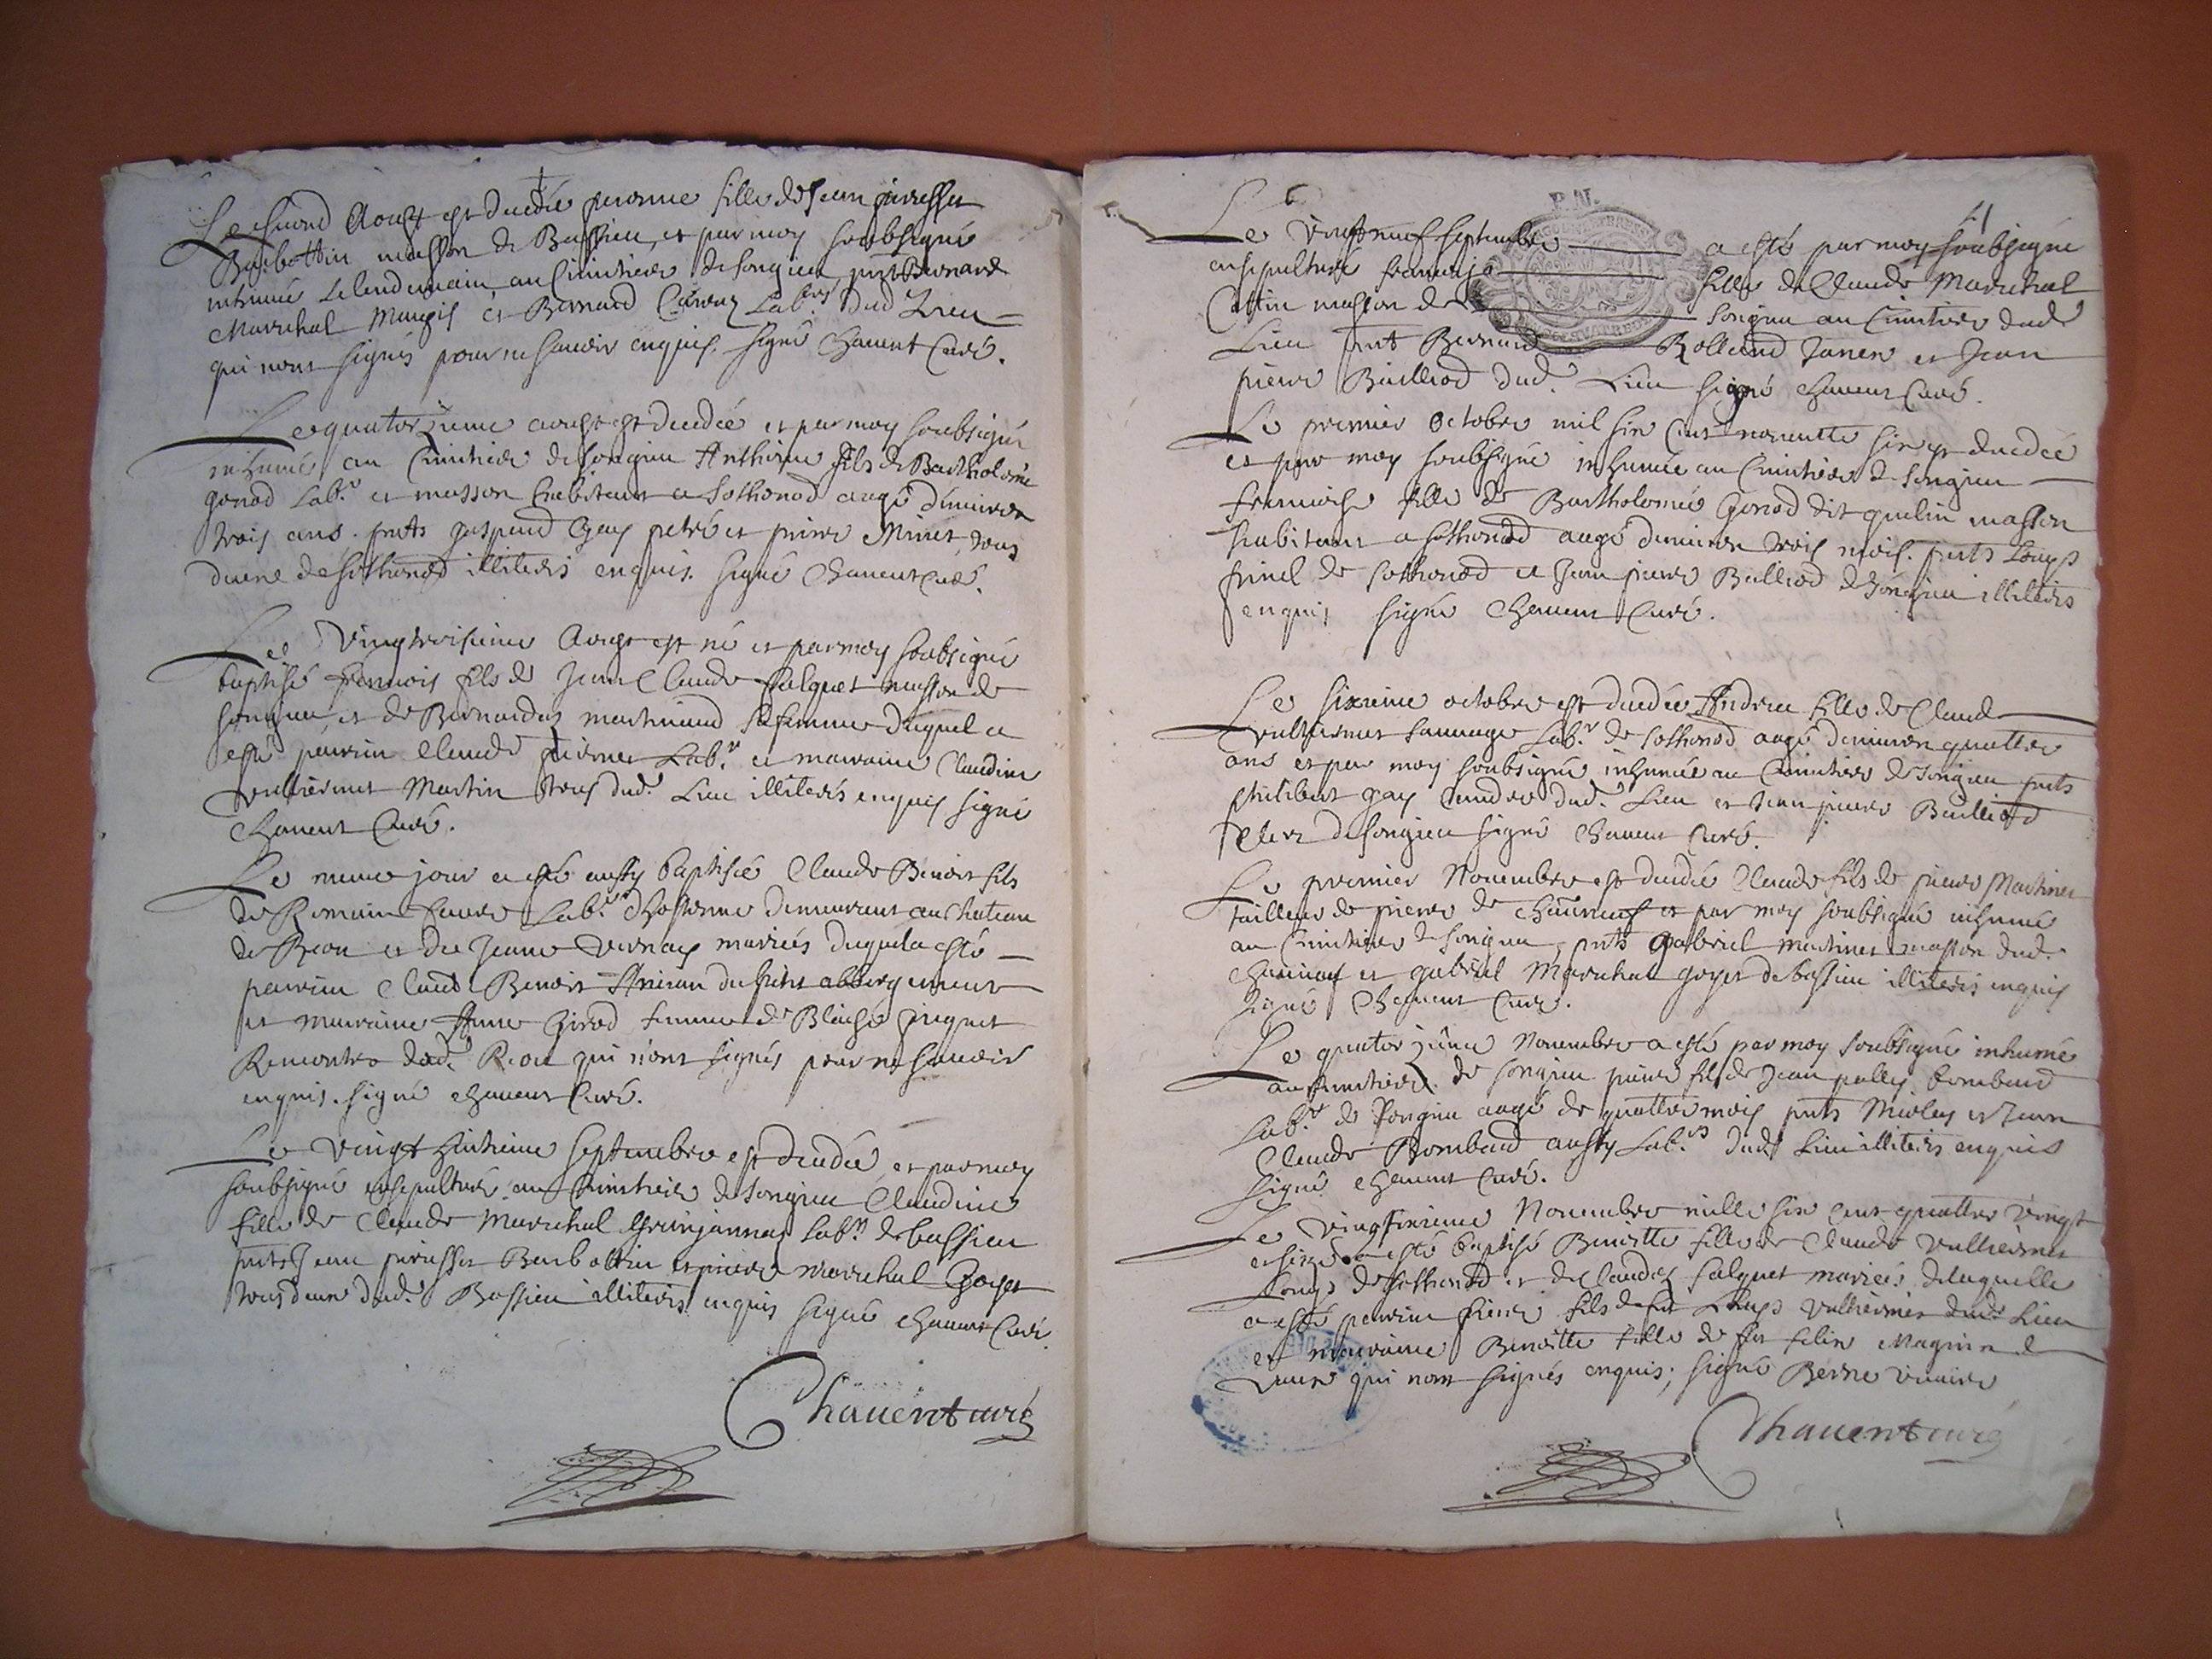 Le second Aoust est decedée peronne fille de Jean
Barbottin masson de Bassieu, et par moy soubsigné
inhumée le lendemain au Cimitiere de Songieu pnts Bernard
Marechal Mangis et Bernard Lab.rs dud Lieu
qui nont signés pour ne scavoir enquis. signé Chavent Curé.
Le quatorzieme aoust est decedée et par moy soubsigné
inhumé au Cimitiere de Songieu Anthoine fils de Bartholomé
gonod lab.r et masson habitant a Sothonod augé denviron
trois ans. pnts gaspard Gay petré et pierre Minet tous
deux de Sothonod illiterés enquis. signé Chavent curé.
Le vingtroisieme Aoust est né et par moy soubsigné
baptisé francois fils de Jean Claude falquet masson de
songieu, et de Bernarde martinand sa femme duquel a
esté parrin Claude Lab.r et marraine Claudine
vulliermet Martin tous dud. Lieu illiterés enquis signé
Chavent Curé.
Le meme jour a esté aussy baptisée Claude Benoit fils
de Romain Lab.r demeurant au Chateau
de Reou et de Jeanne vernay mariés duquel a esté
parrin Claude Benoit du petit abbergement
et marraine Anne Girod femme de Blaise
dud. Reou qui n'ont signés pour ne scavoir
enquis. signé chavent Curé.
Le vingt huitieme Septembre est decedée, et par moy
soubsigné ensepulturée au Cimitiere de Songieu Claudine
fille de Claude Marechal Lab.r de bassieu
pnts Jean Barbottin et pierre marechal Goyet
tous deux dud. Bassieu illiterés enquis signé chavent Curé
Chavent curé
Le vingtneuf septembre a esté par moy soubsigné
ensepulturé fille de Claude Marechal
Cattin masson de Songieu au Cimitiere dud.
Lieu pnt Bernard Rolland Janen et Jean
pierre Bailliod dud. Lieu signé chavent Curé.
Le premier octobre mil six cent nonante six est decedée
et par moy soubsigné inhumée au Cimitiere de Songieu
francoise fille de Bartholomée Gonod dit quelin masson
habitant a Sothonod augé denviron trois mois. pnts Louys
pinel de Sothonod et Jean pierre Bailliod de Songieu illiterés
enquis signé Chavent Curé.
Le sixieme octobre est decedée Andrea fille de Claude
vulliermet Sauvage Lab.r de Sothonod augé denviron quattre
ans et par moy soubsigné inhumée au Cimitiere de Songieu pnts
philibert gay dud. Lieu et Jean pierre Bailliod
Clerc de Songieu signé Chavent Curé.
Le premier Novembre est decedé Claude fils de pierre Martinet
tailleur de pierre de et par moy soubsigné inhumé
au Cimitiere de Songieu, pnts Gabriel martinet masson dud.
et gabriel Marechal goyet de bassieu illiterés enquis
signé Chavent Curé.
Le quatorzieme Novembre a esté par moy soubsigné inhumé
au Cimitiere de Songieu pierre fils de Jean
Lab.r de Songieu augé de quattre mois pnts et Jean
Claude aussy Lab.rs dud. Lieu illiterés enquis
signé chavent Curé.
Le vingtsixieme Novembre mille six cent quattre vingt
et seize a esté baptisé Benoitte fille de Claude vulliermet
Louys de Sothonod et de Claude falquet mariés de laquelle
a esté parrin pierre fils de fut Louys vulliermet dud. Lieu
et marraine Benoitte fille de fut felix Magnin de
qui nont signés enquis; signé Berne vicaire
Chavent curé